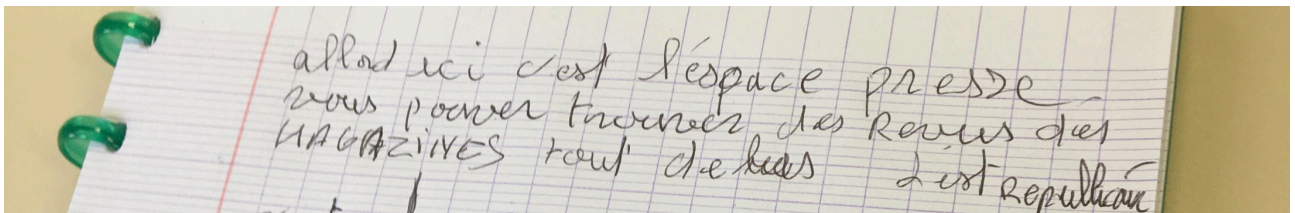 allord ici c'est l'éspace presse
vous pouver trouver des Revus des
MAGAZiNES tout debus L'est Republicain